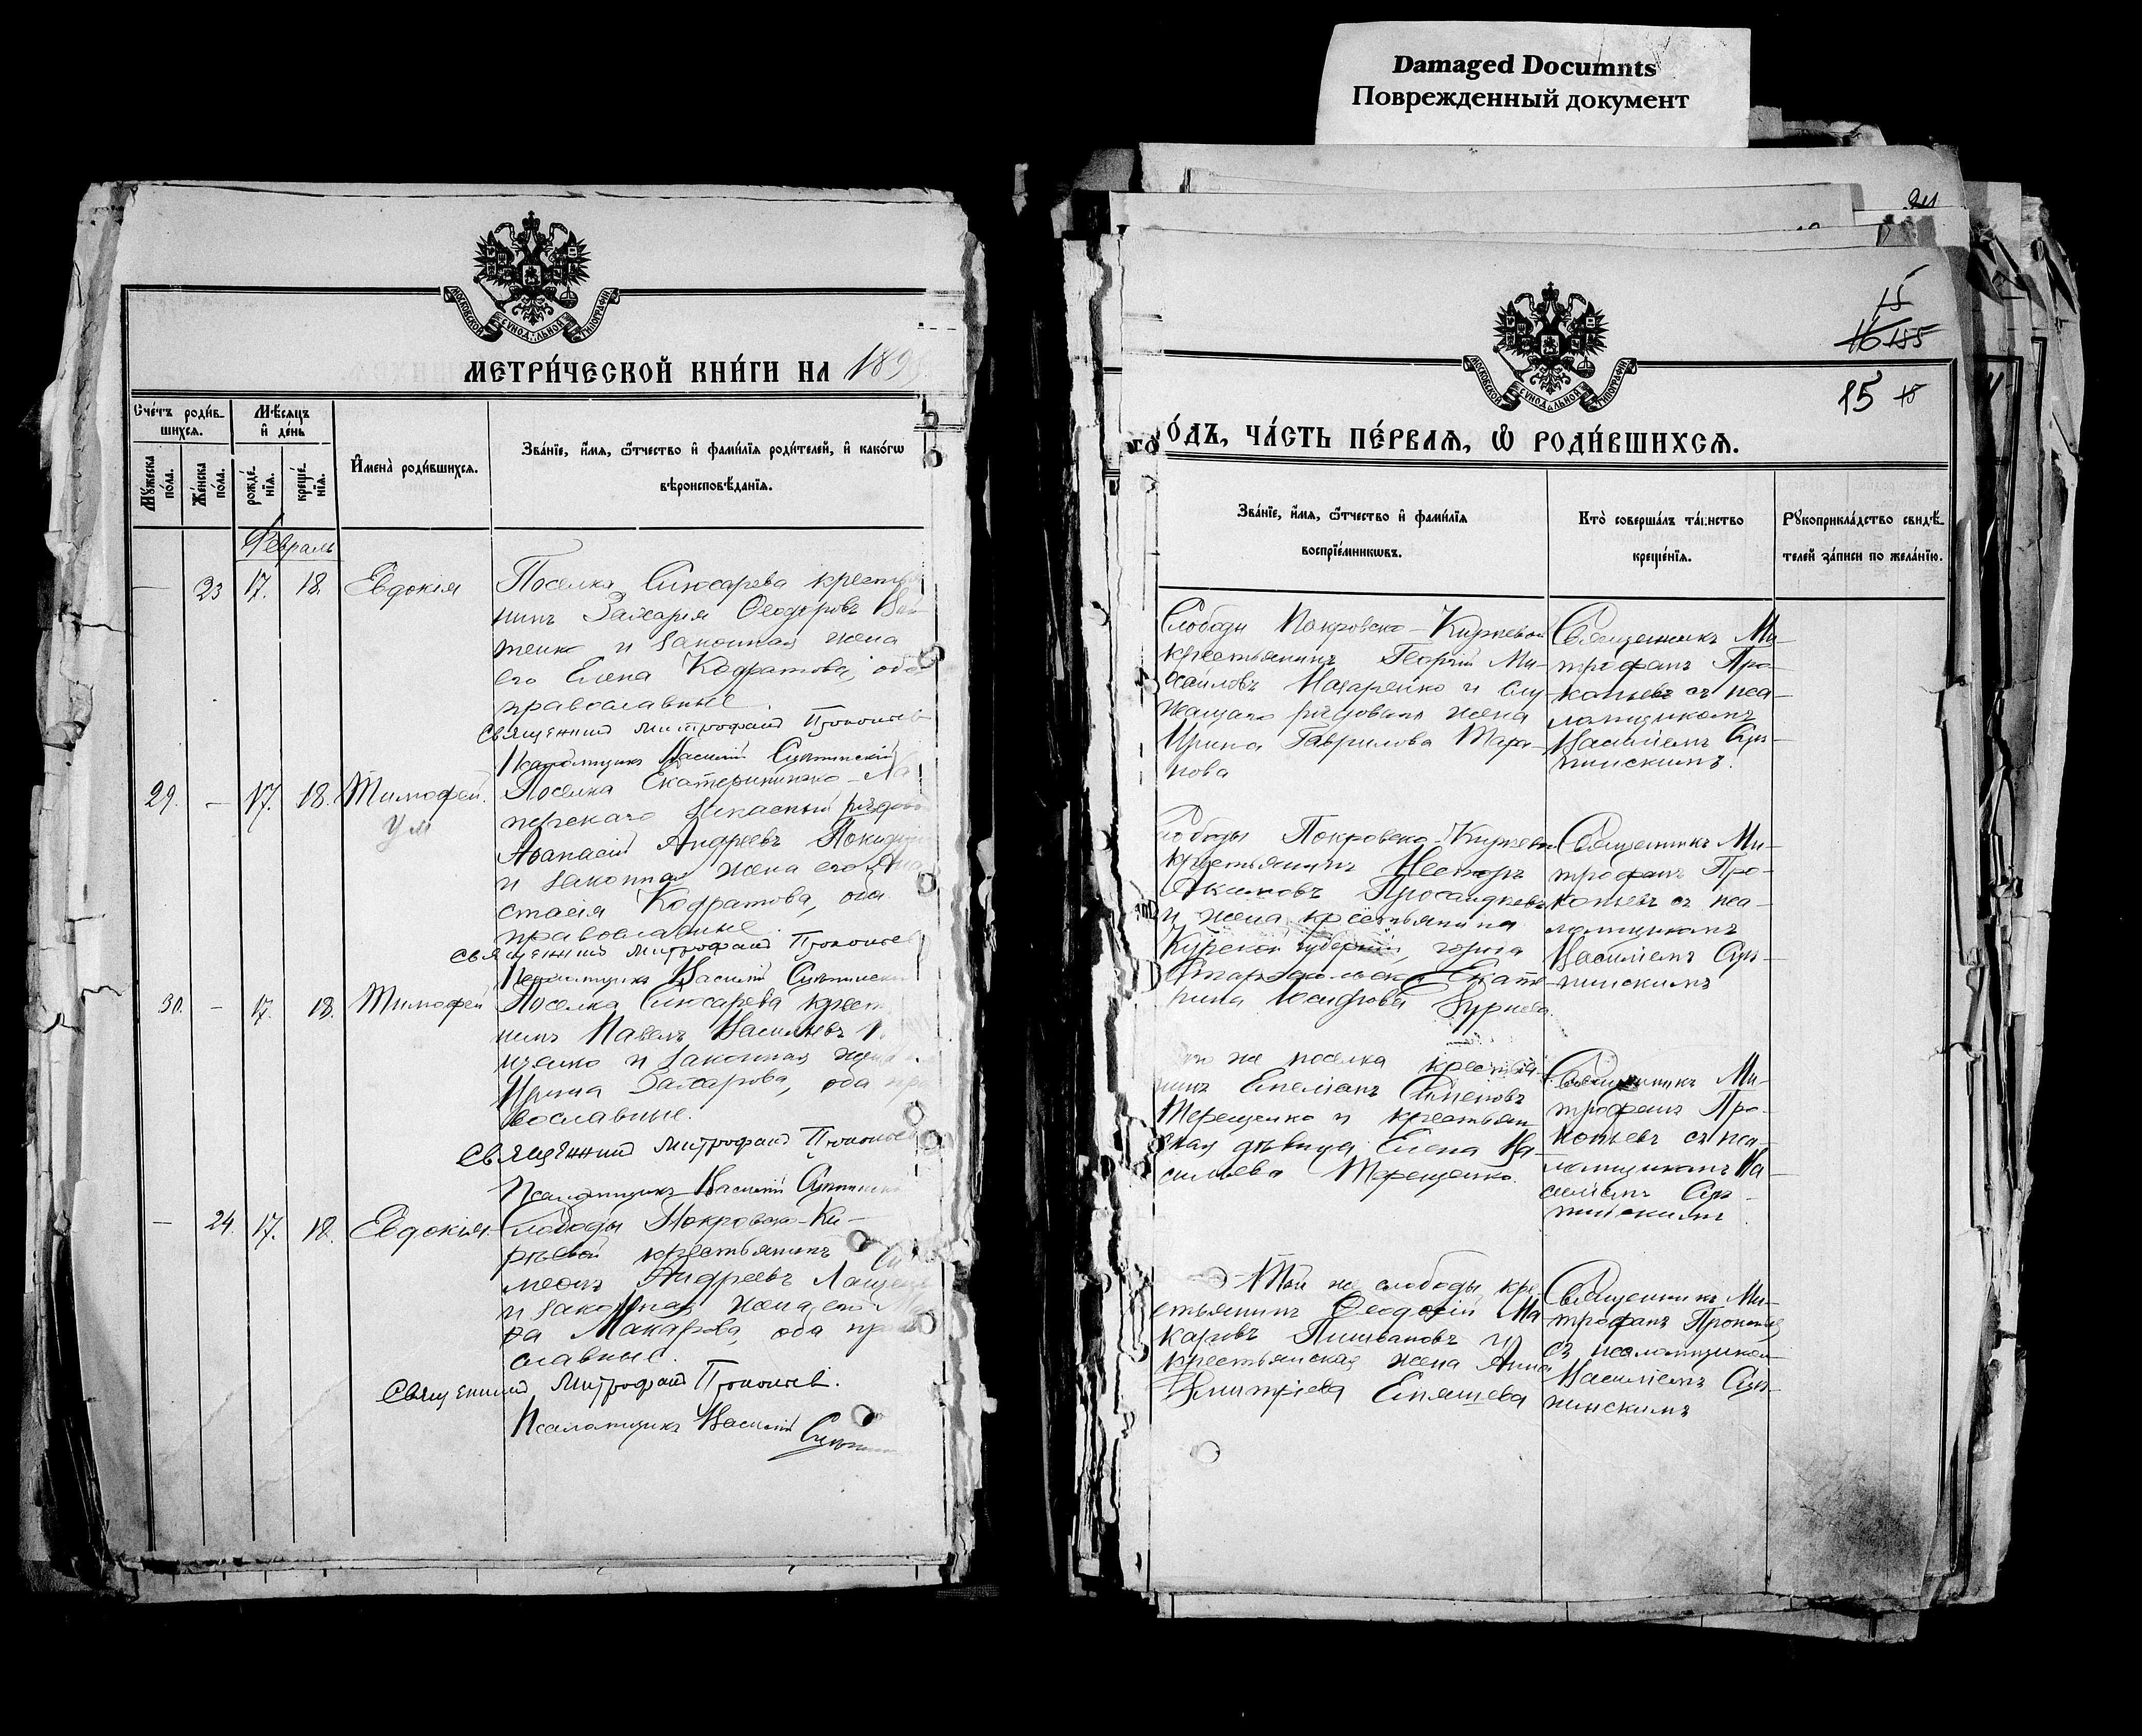 Damaged Documnts
Поврежденный документ
МОСКОВСКОЙ СѴНОДАЛЬНОЙ ТИПОГРАФІИ
МЕТРИ́ЧЕСКОЙ КНИ́ГИ НА 189
Сче́тъ роди́в-
шихсѧ.
Мѣ́сѧцъ
и҆ де́нь
Мꙋ́жеска
по́ла.
Же́нска
по́ла.
рожде́-
нїѧ.
креще́-
нїѧ.
И҆мена̀ роди́вшихсѧ.
Зва́нїе, и҆́мѧ, ѻ҆́тчество и҆ фами́лїѧ роди́телей, и҆ како́гѡ
вѣроисповѣ́данїѧ.
Февраль
— 23 17. 18. Евдокія
Поселка Слюсарева крестья
нинъ Захарія Ѳеодоровъ
тенко и законная жена
его Елена Кодратова, оба
православные.
Священник Митрофанъ Прокопьев
Псаломщикъ Василій
29. — 17. 18. Тимофей.
Ум
Поселка Екатериновско-
Аѳанасій Андреевъ
и законная жена его Ана
стасія Кодратова, оба
православные.
Священник Митрофанъ Прокопьев
Псаломщикъ Василій
30. — 17. 18. Тимофей
Поселка Слюсарева крест
нинъ Павелъ Васильевъ
щенко и законная жена
Ирина Захарова, оба пра
вославные.
Священник Митрофанъ Прокопьев
Псаломщикъ Василій
— 24. 17. 18. Евдокія.
Слободы Покровско-Ки-
рѣевой крестьянинъ Си
меонъ Андреевъ
и законная жена его
ра Макарова, оба право
славные.
Священник Митрофанъ Прокопьев.
Псаломщикъ Василій
15
16 155
15 15
МОСКОВСКОЙ СѴНОДАЛЬНОЙ ТИПОГРАФІИ
го́дъ, ча́сть пе́рваѧ, ѡ҆ роди́вшихсѧ.
Зва́нїе, и҆́мѧ, ѻ҆́тчество и҆ фами́лїѧ
воспрїе́мникѡвъ.
Кто̀ соверша́лъ та́инство
креще́нїѧ.
Рꙋкоприкла́дство свидѣ́-
телей за́писи по жела́нїю.
Слободы Покровско-Кирѣевой
крестьянинъ Георгій Ми-
хаиловъ Назаренко и слу-
жащаго рядоваго жена
Ирина Гаврилова Тара-
нова
Священникъ Ми-
трофанъ Про-
копьевъ съ пса-
ломщикомъ
Василіемъ
Слободы Покровско-Кирѣевой
крестьянинъ Несторъ
Акимовъ
и жена крестьянина
Курской губерніи, города
Старооскольска Екате
рина Іосифова
Священникъ Ми-
трофанъ Про-
копьевъ съ пса-
ломщикомъ
Василіемъ
того же поселка крестья-
нинъ Емеліанъ Симеоновъ
Терещенко и крестьян
ская дѣвица Елена Ва-
сильева Терещенко.
Священникъ Ми-
трофанъ Про-
копьевъ съ пса-
ломщикомъ Ва-
силіемъ
Той же слободы кре-
стьянинъ Ѳеодосій Ма
каровъ и
крестьянская жена Анна
Димитріева
Священникъ Ми-
трофанъ Прокопьев
съ псаломщиком
Василіемъ